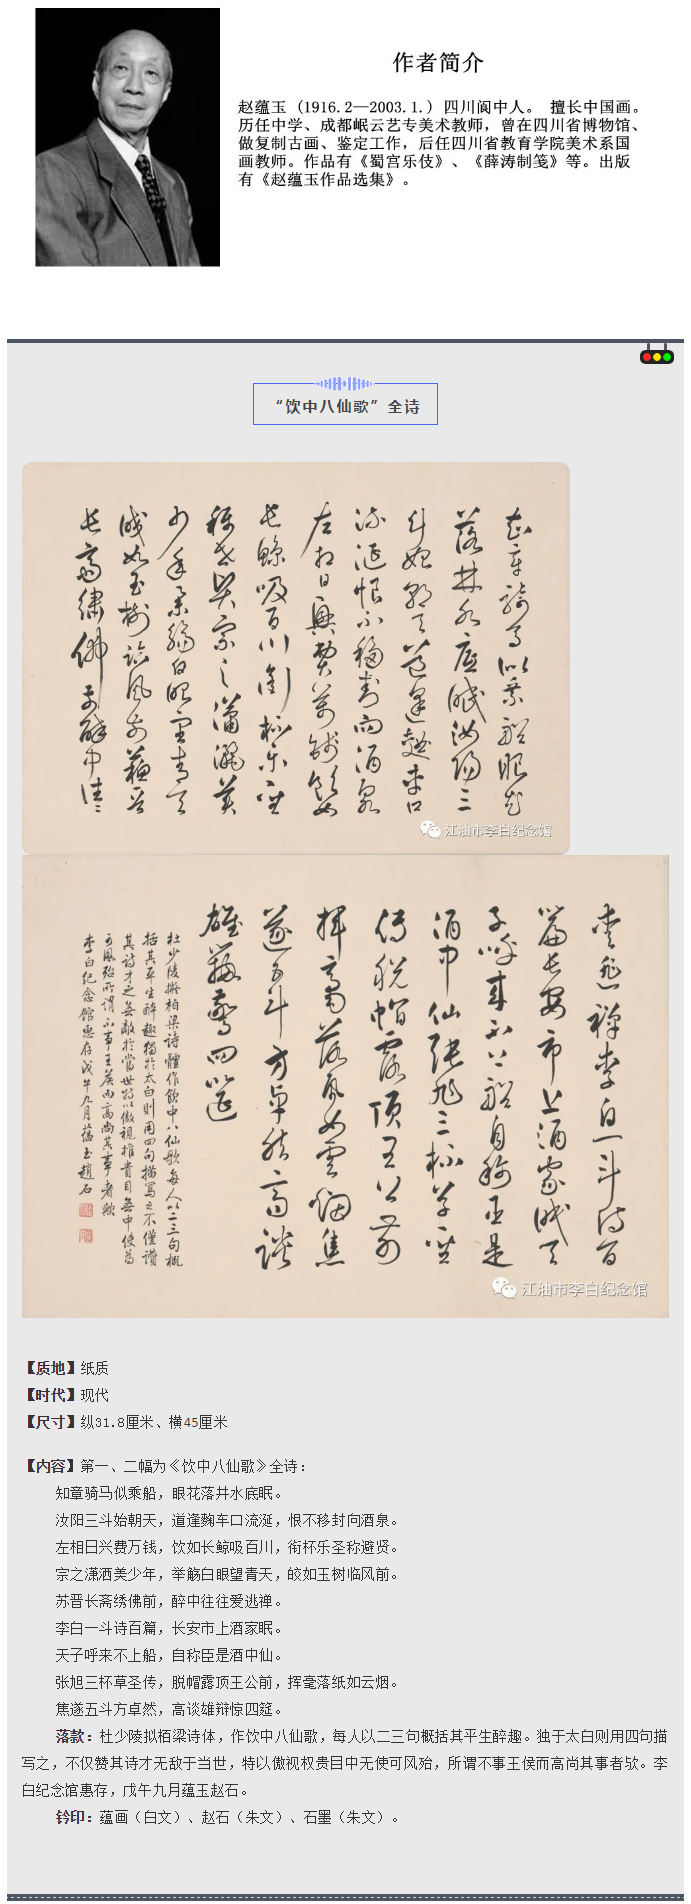 作者简介
赵蕴玉（1916.2—2003.1.）四川阆中人。 擅长中国画。
历任中学、成都岷云艺专美术教师，曾在四川省博物馆、
做复制古画、鉴定工作，后任四川省教育学院美术系国
画教师。作品有《蜀宫乐伎》、《薛涛制笺》等。出版
有《赵蕴玉作品选集》。
“饮中八仙歌”全诗
知章騎馬似乘船眼花
落井水底眠汝陽三
斗始朝天道逢麯車口
流涎恨不移封向酒泉
左相日興費萬錢飲如
長鯨吸百川銜杯樂聖
稱世賢宗之瀟灑美
少年舉觴白眼望青天
皎如玉樹臨風前蘇晉
長齋繡佛前醉中往往
江油市李白纪念馆
愛逃禪李白一斗詩百
篇長安市上酒家眠天
子呼來不上船自稱臣是
酒中仙張旭三杯草聖
傳脫帽露頂王公前
揮毫落紙如雲烟焦
遂五斗方卓然高談
雄辯驚四筵
杜少陵擬柏梁詩體作飲中八仙歌每人以二三句概
括其平生醉趣獨於太白則用四句描寫之不僅讚
其詩才之無敵於當世特以傲視權貴目無中使爲
可風殆所謂不事王侯而高尚其事者歟
李白纪念館惠存戊午九月蕴玉趙石
江油市李白纪念馆
【质地】纸质
【时代】现代
【尺寸】纵31.8厘米、横45厘米
【内容】第一、二幅为《饮中八仙歌》全诗：
知章骑马似乘船，眼花落井水底眠。
汝阳三斗始朝天，道逢麴车口流涎，恨不移封向酒泉。
左相日兴费万钱，饮如长鲸吸百川，衔杯乐圣称避贤。
宗之潇洒美少年，举觞白眼望青天，皎如玉树临风前。
苏晋长斋绣佛前，醉中往往爱逃禅。
李白一斗诗百篇，长安市上酒家眠。
天子呼来不上船，自称臣是酒中仙。
张旭三杯草圣传，脱帽露顶王公前，挥毫落纸如云烟。
焦遂五斗方卓然，高谈雄辩惊四筵。
落款：杜少陵拟栢梁诗体，作饮中八仙歌，每人以二三句概括其平生醉趣。独于太白则用四句描
写之，不仅赞其诗才无敌于当世，特以傲视权贵目中无使可风殆，所谓不事王侯而高尚其事者欤。李
白纪念馆惠存，戊午九月蕴玉赵石。
钤印：蕴画（白文）、赵石（朱文）、石墨（朱文）。